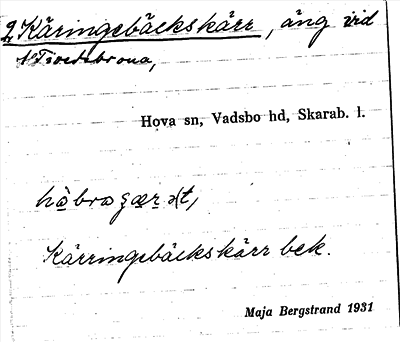 2 Käringebäckskärr, äng vid
N Tivedsbrona,
Hova sn, Vadsbo hd, Skarab. l.
Kärringebäckskärr bek.
Maja Bergstrand 1931